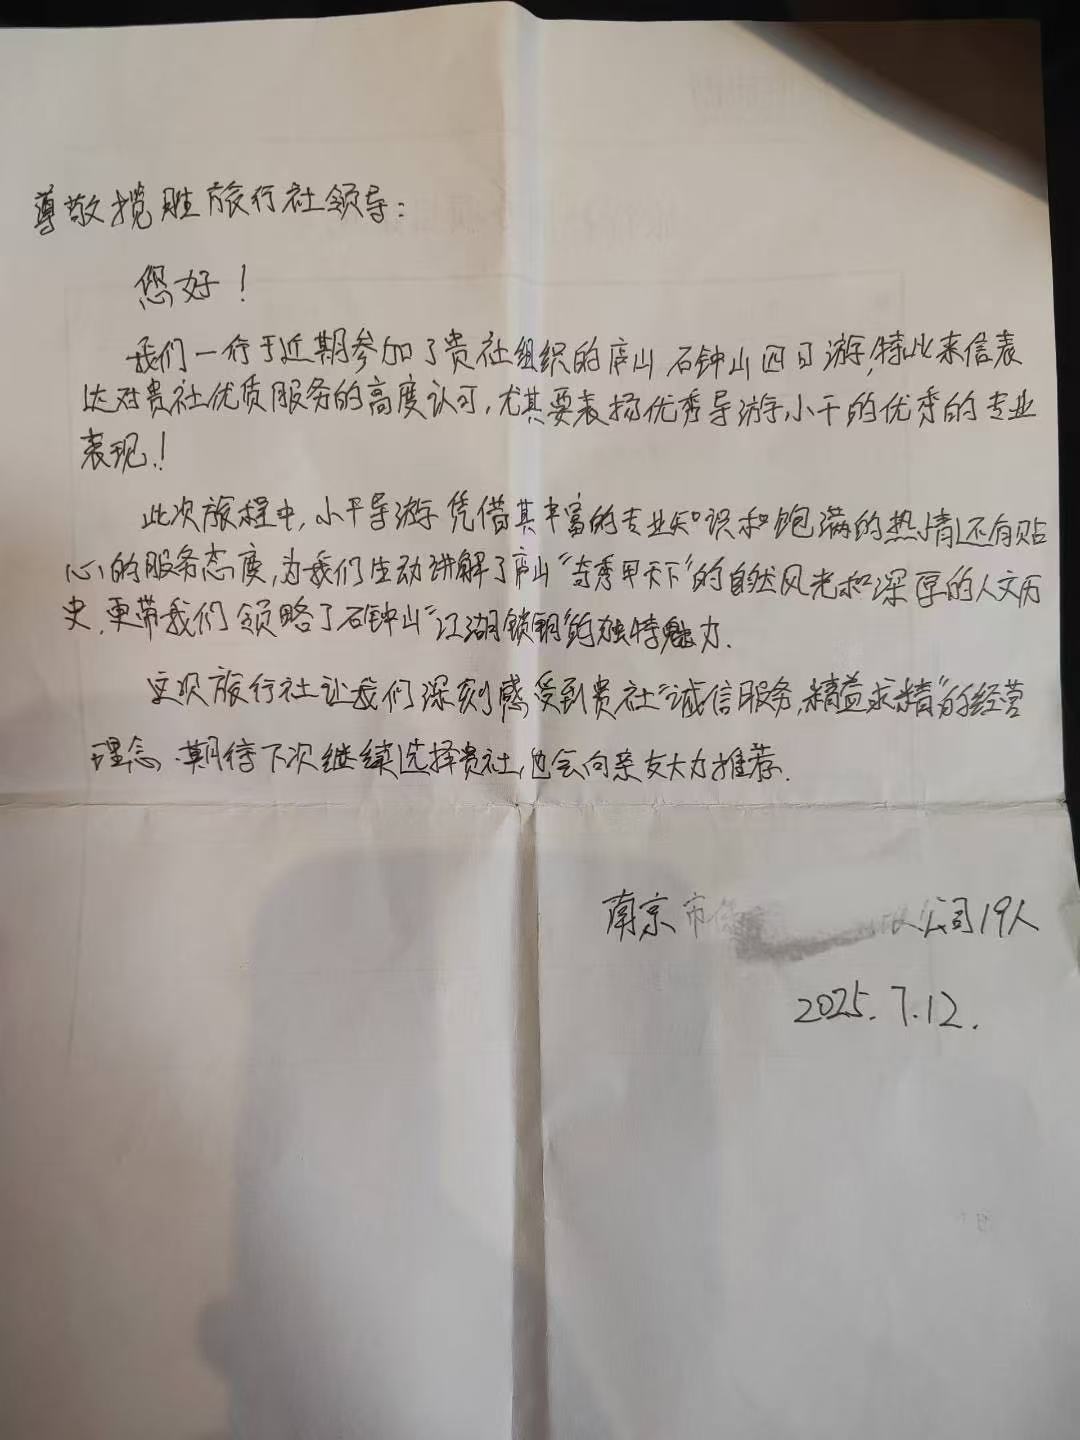 尊敬揽胜旅行社领导:
您好!
我们一行于近期参加了贵社组织的庐山 石钟山四日游,特此来信表
达对贵社优质服务的高度认可,尤其要表扬优秀导游小干的优秀的专业
表现.!
此次旅程中,小平导游凭借其丰富的专业知识和饱满的热情还有贴
心的服务态度,为我们生动讲解了庐山"奇秀甲天下"的自然风光和深厚的人文历
史,更带我们领略了石钟山"江湖锁钥"的独特魅力.
这次旅行社让我们深刻感受到贵社"诚信服务,精益求精"的经营
理念.期待下次继续选择贵社,也会向亲友大力推荐.
南京市 公司19人
2025.7.12.